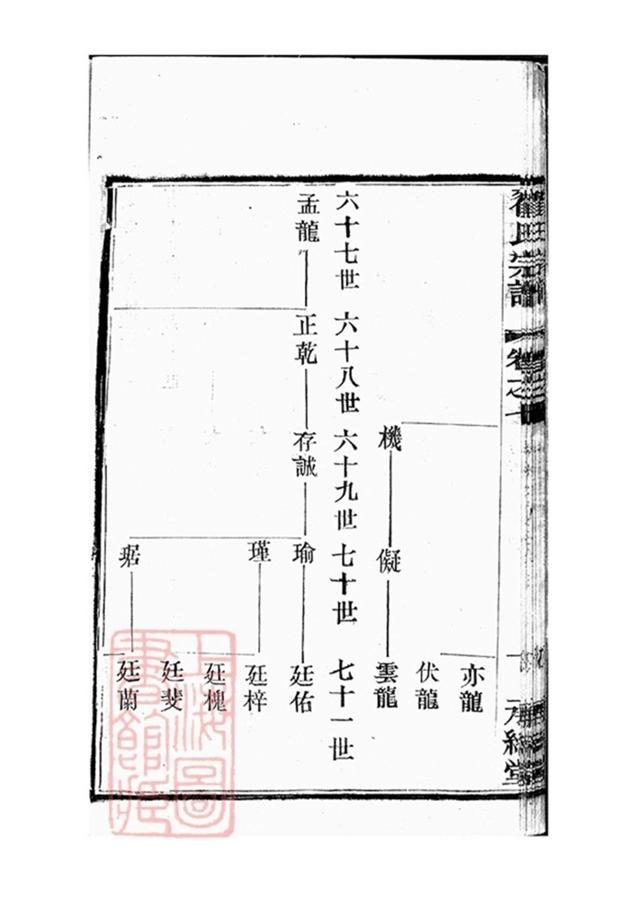 氏宗譜
卷之
堂
亦龍
伏龍
機 儗 雲龍
六十七世 六十八世 六十九世 七十世 七十一世
孟龍 正乾 存誠 瑜 廷佑
瑾 廷梓
廷槐
廷斐
琚 廷蘭
上海圖書館藏